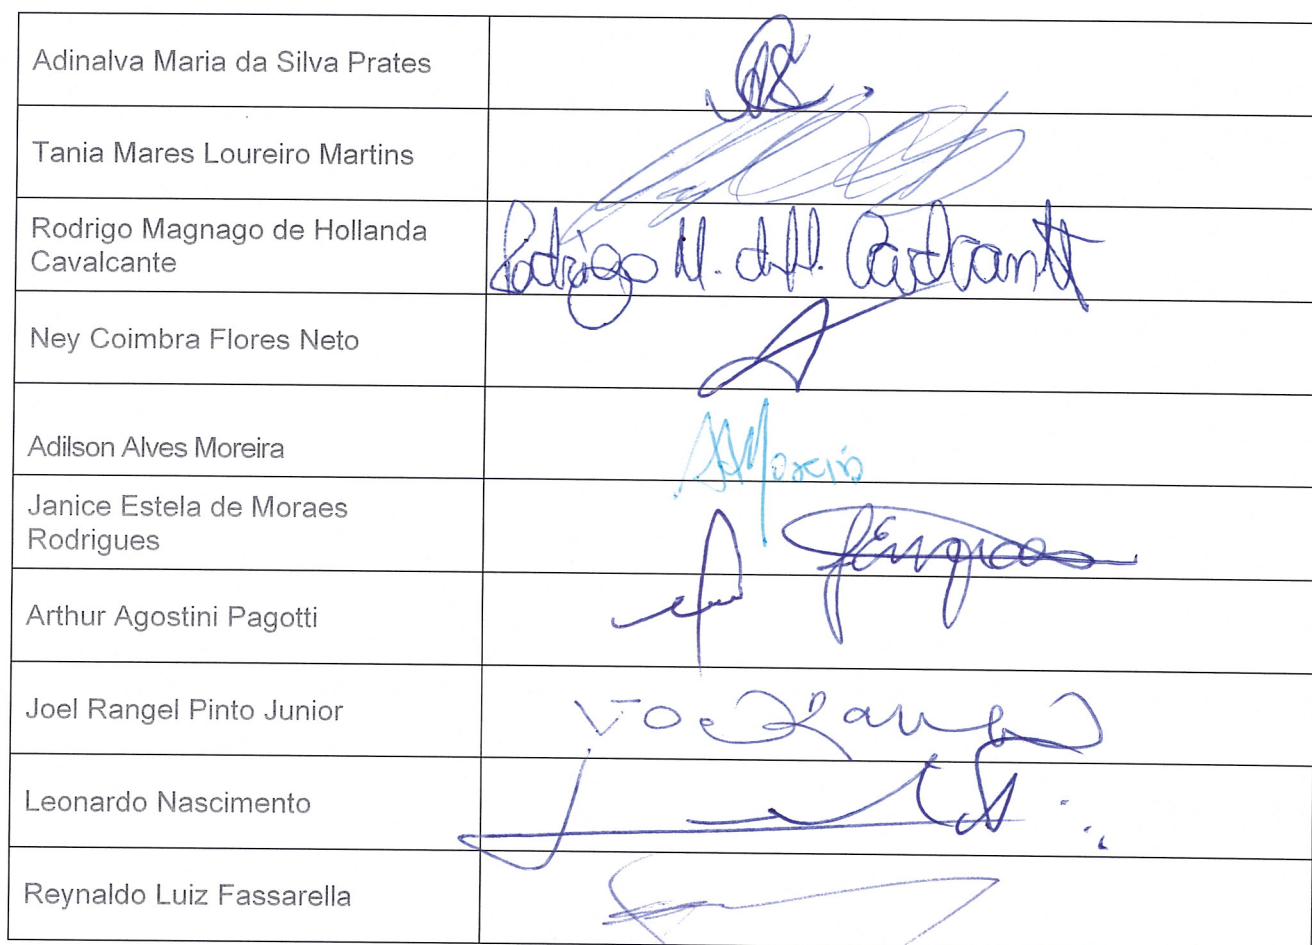 Adinalva Maria da Silva Prates
Tania Mares Loureiro Martins
Rodrigo Magnago de Hollanda
Cavalcante
Rodrigo M. d. H. Cavalcanti
Ney Coimbra Flores Neto
Adilson Alves Moreira
AAMoreira
Janice Estela de Moraes
Rodrigues
Arthur Agostini Pagotti
Joel Rangel Pinto Junior
Leonardo Nascimento
Reynaldo Luiz Fassarella